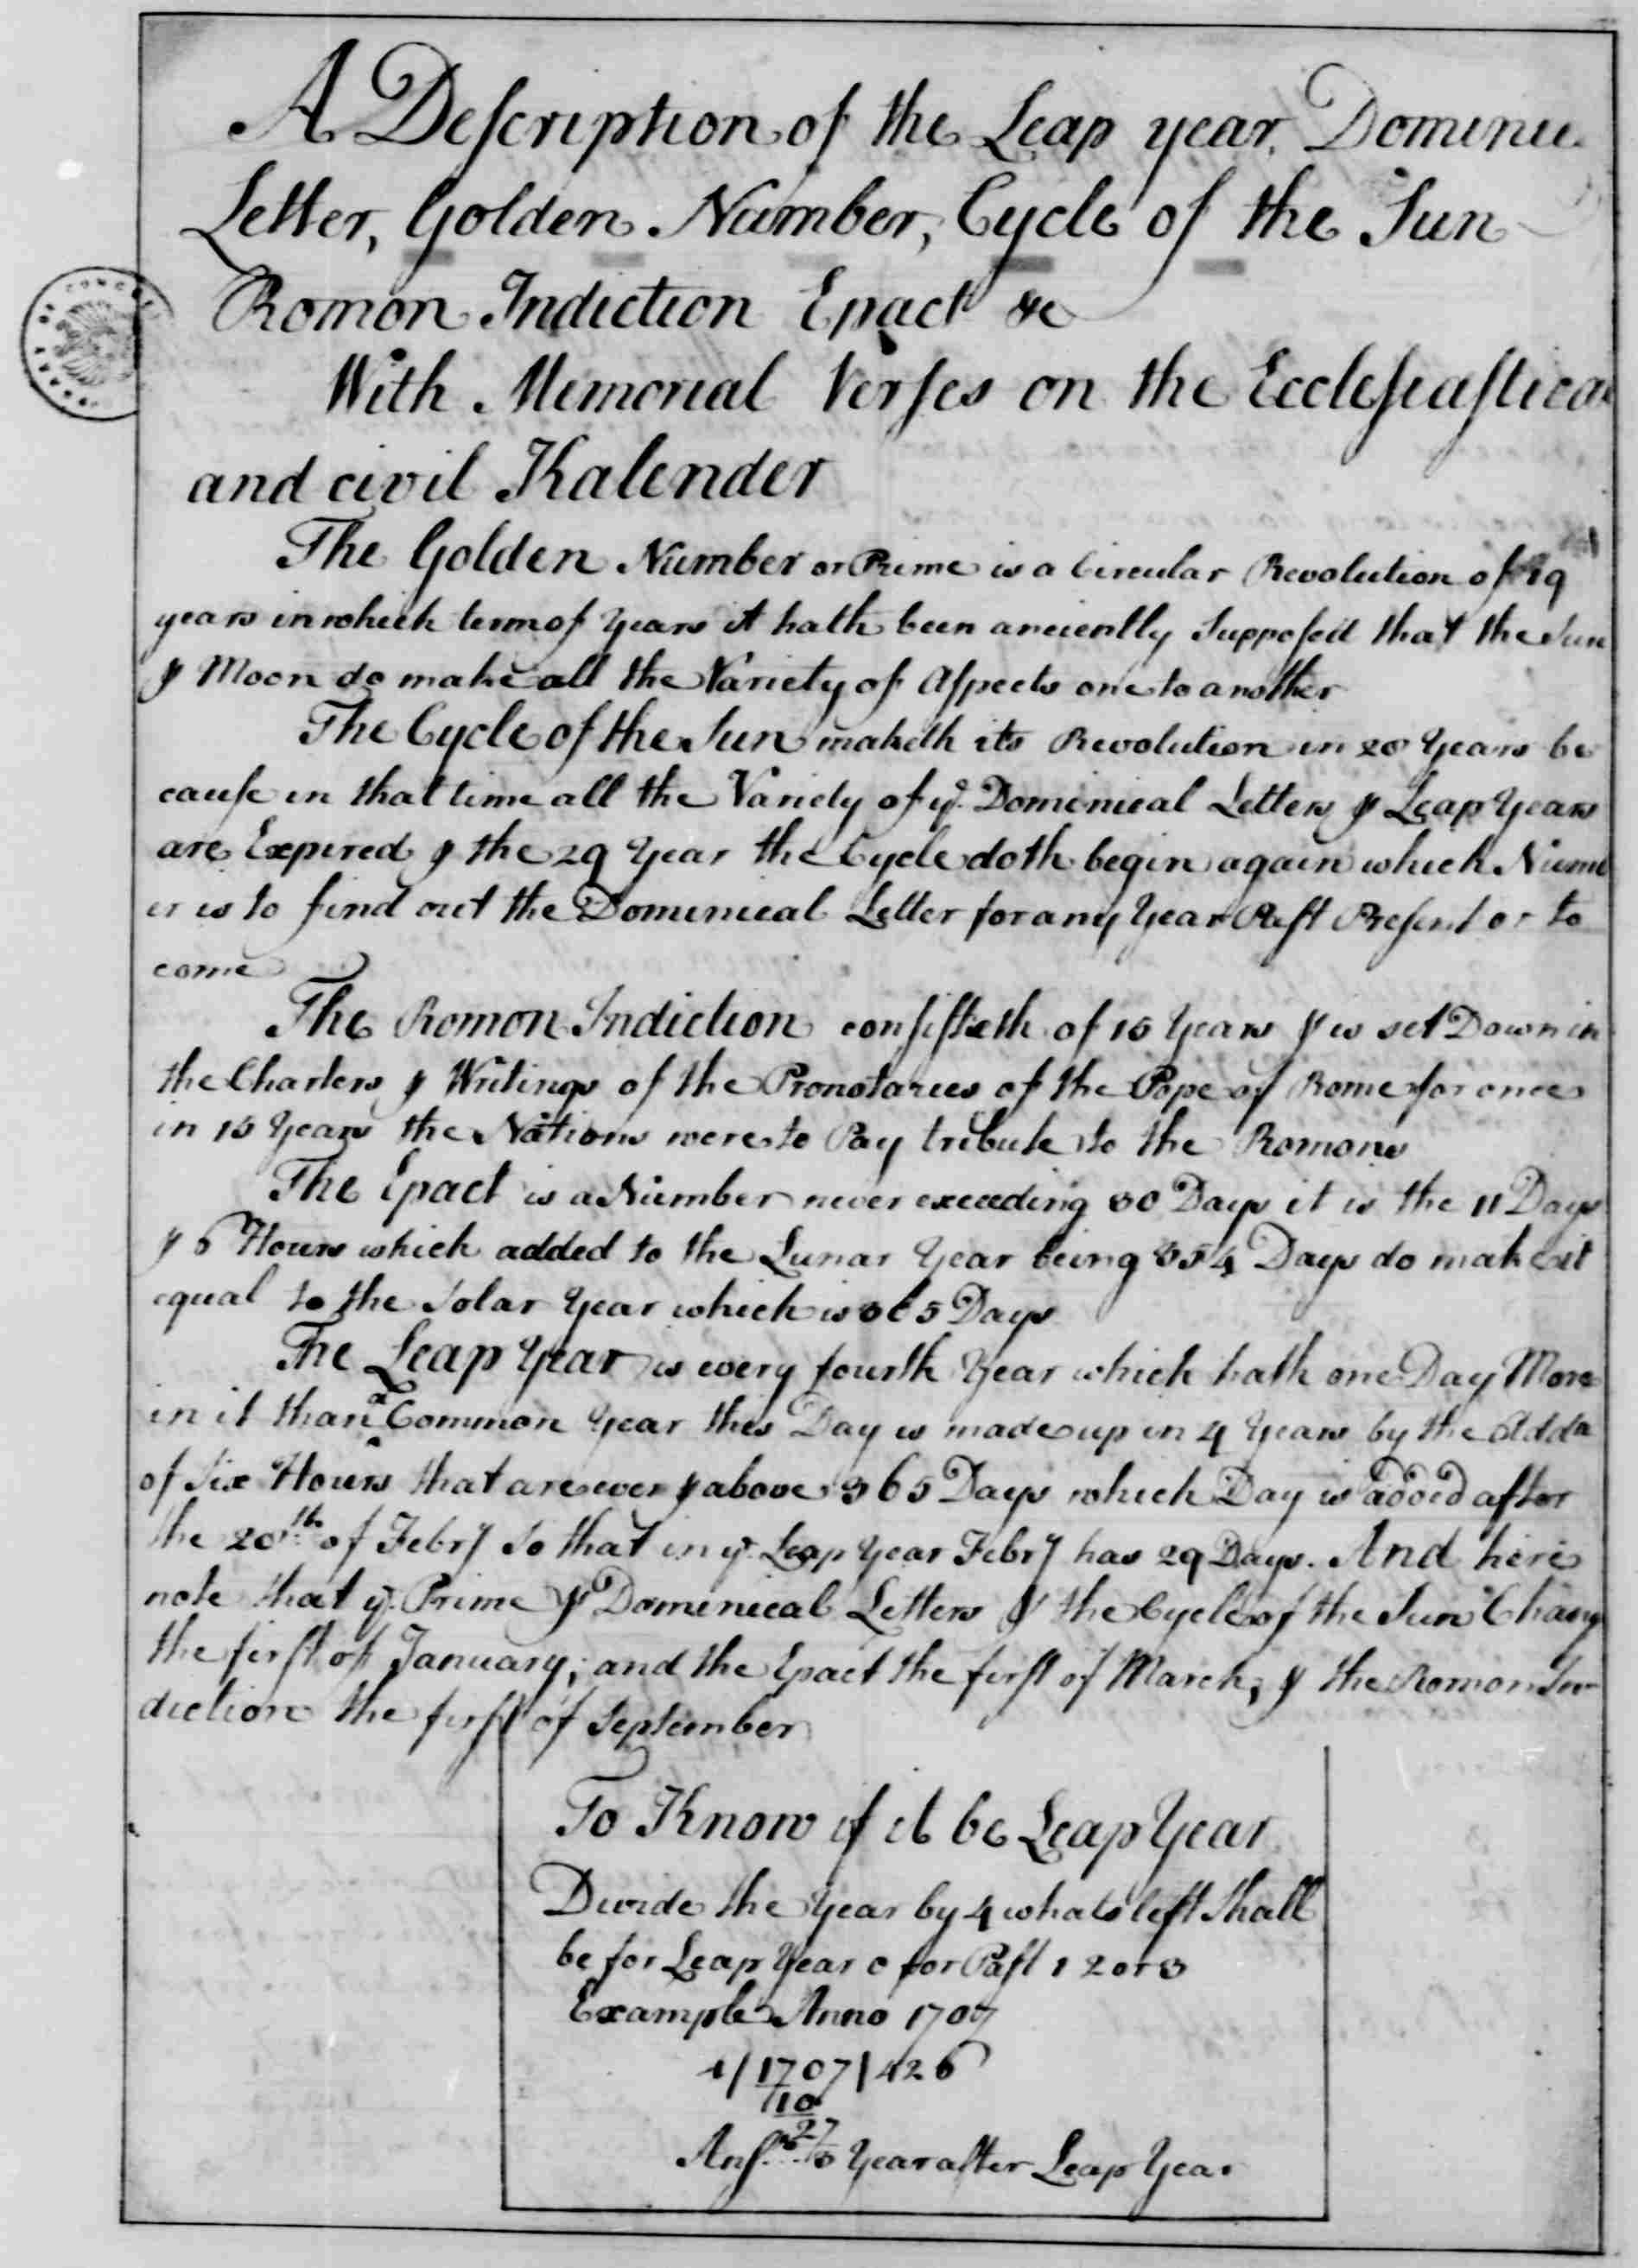 A Description of the Leap year, Dominic
Letter, Golden Number, Cycle of the Sun
Romon Indiction Epact &c
With Memorial Verses on the Ecclesiastical
and civil Kalender
The Golden Number or Prime is a Circular Revolution of 19
years in which term of Years it hath been anciently Supposed that the Sun
& Moon do make all the Variety of Aspects one to another
The Cycle of the Sun maketh its Revolution in 28 Years be
cause in that time all the Variety of ye. Dominical Letters & Leap Years
are Expired & the 29 Year the Cycle doth begin again which Numb
er is to find out the Dominical Letter for any Year Past Present or to
come
The Romon Indiction consisteth of 15 Years & is set Down in
the Charters & Writings of the Pronotaries of the Pope of Rome for once
in 15 Years the Nations were to Pay tribute to the Romons
The Epact is a Number never exceeding 30 Days it is the 11 Days
& 6 Hours which added to the Lunar Year being 354 Days do make it
equal to the Solar Year which is 365 Days
The Leap Year is every fourth Year which hath one Day More
in it than a Common Year this Day is made up in 4 Years by the Addn
of Six Hours that are over & above 365 Days which Day is added after
the 28th. of Febry So that in ye. Leap Year Febry has 29 Days. And here
note that ye. Prime & Dominical Letters & the Cycle of the Sun Chang
the first of January; and the Epact the first of March; & the Romon In-
diction the first of September
To Know if it be Leap Year
Divide the Year by 4 whats left Shall
be for Leap Year 0 for Past 1 2 or 3
Example Anno 1707
4/1707\426
10
27
Ans. 3 Year after Leap Year